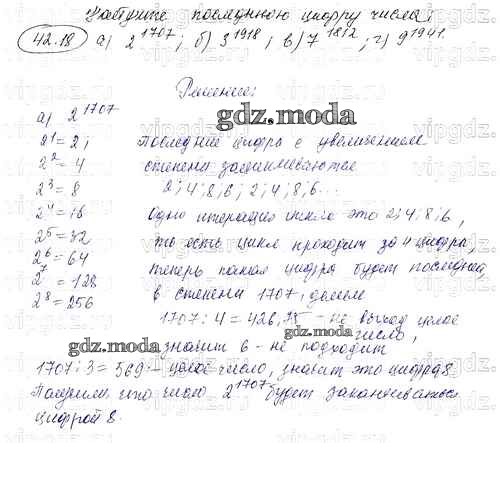 Найдите последнюю цифру числа:
42.18 а) 2^1707; б) 3^1918; в) 7^1812; г) 9^1941.
Решение:
gdz.moda
а) 2^1707
2^1 = 2; Последние цифры с увеличением
2^2 = 4 степени зацикливаются
2^3 = 8 2; 4; 8; 6; 2; 4; 8; 6...
2^4 = 16 Одна итерация цикла это 2; 4; 8; 6,
2^5 = 32 то есть цикл проходит за 4 цифры,
2^6 = 64 теперь какая цифра будет последней,
2^7 = 128 в степени 1707, делем
2^8 = 256 1707 : 4 = 426,75 - не выход целое
число,
gdz.moda gdz.moda
значит 6 - не подходит
1707 : 3 = 569 - целое число, значит это цифра 8.
Получили что число 2^1707 будет заканчиваться
цифрой 8.